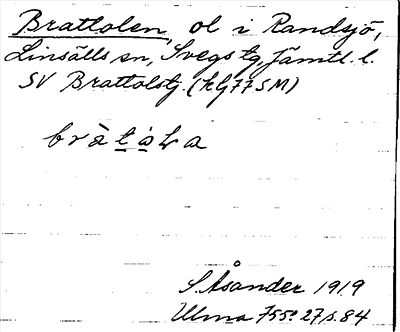 Brattolen, ol i Randsjö,
Linsälls sn, Svegs tg, Jämtl. l.
SV Brattolstj. (kg 77 SM)
S. Åsander 1919
Ulma 755: 27 s. 84